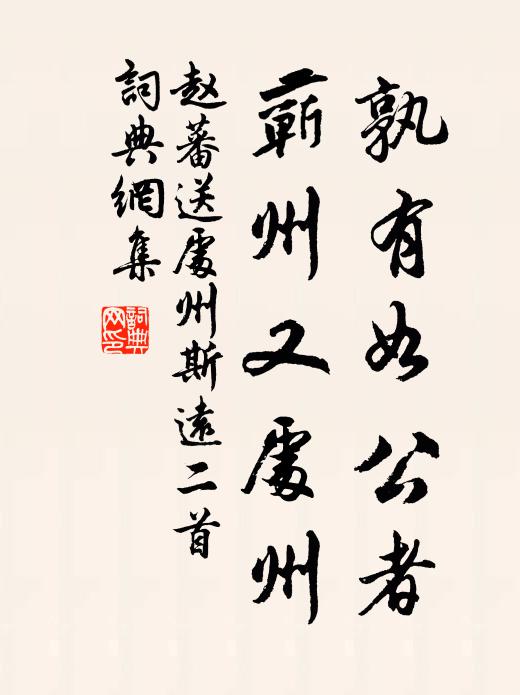 孰有如公者
蘄州又處州
赵蕃送處州斯遠二首
詞典網集
詞典
网印